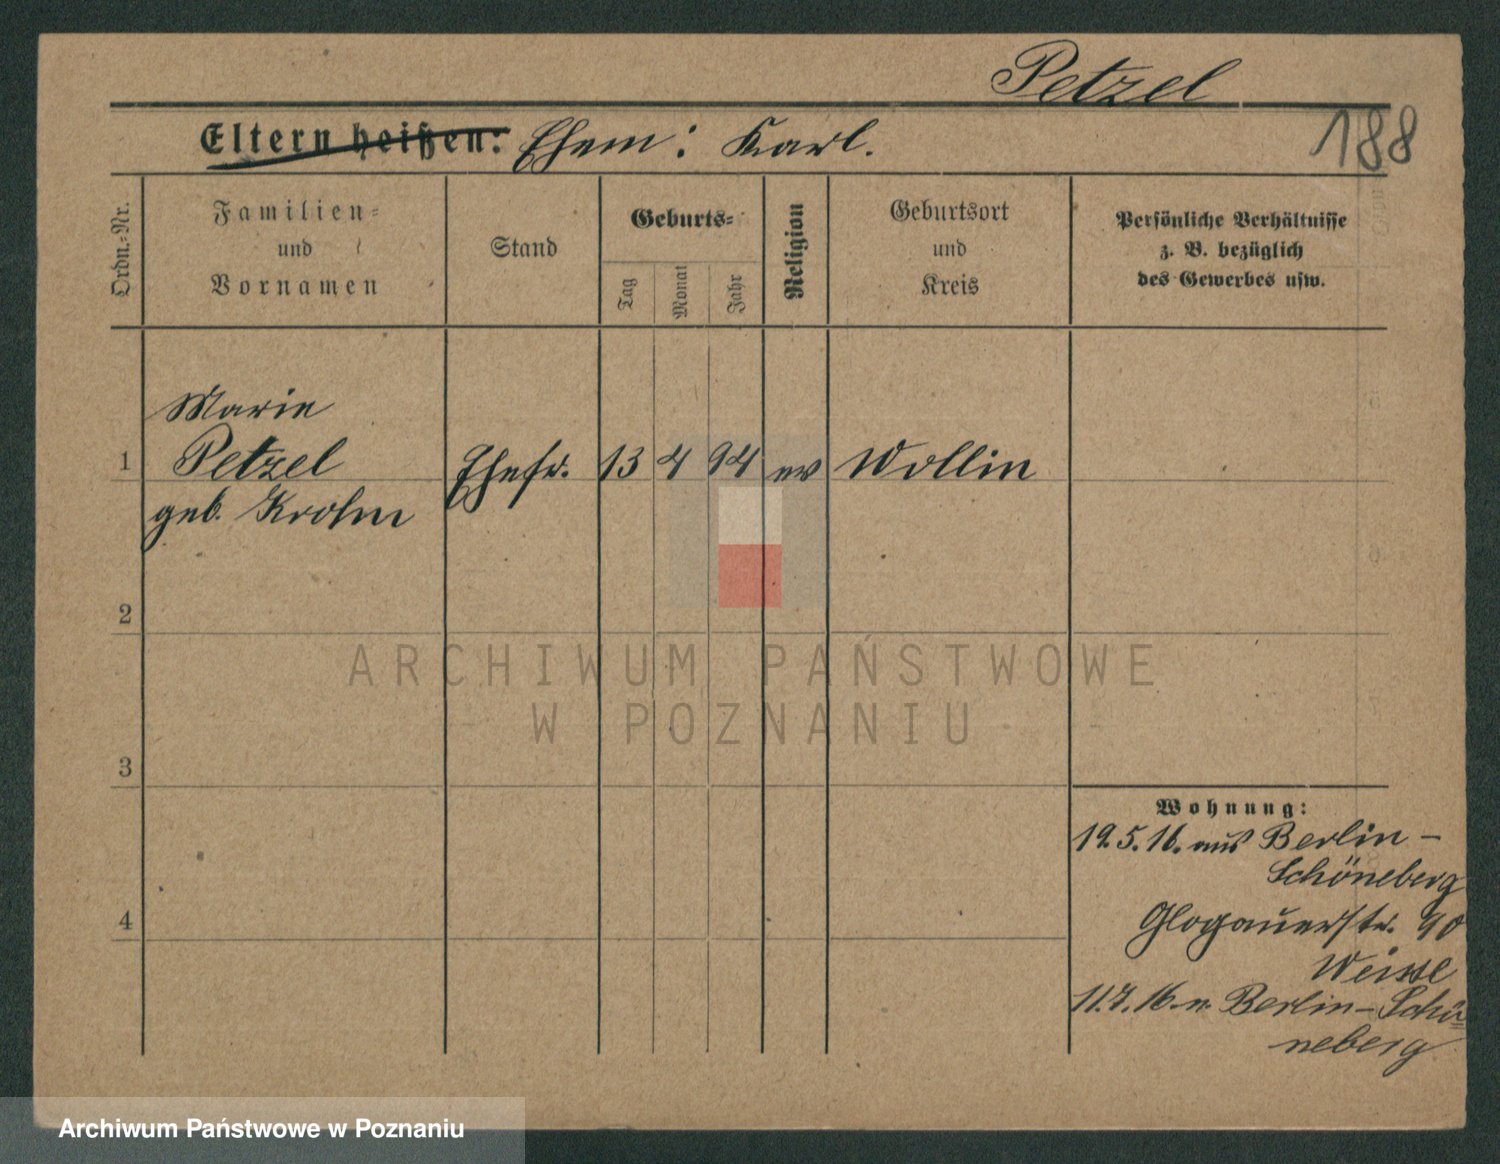 Petzel
188
Eltern heißen: Ehem: Karl.
Ordn.-Nr.
Familien-
und
Vornamen
Stand
Geburts-
Tag
Monat
Jahr
Religion
Geburtsort
und
Kreis
Persönliche Verhältnisse
z. B. bezüglich
des Gewerbes usw.
Marie
1 Petzel Ehefr. 13 4 94 ev Wollin
geb. Krohm
2
3
4
Wohnung:
19.5.16. aus Berlin-
Schöneberg
Glogauerstr. 90
Weisse
11.7.16. n. Berlin-Schö-
neberg
ARCHIWUM PAŃSTWOWE
W POZNANIU
Archiwum Państwowe w Poznaniu